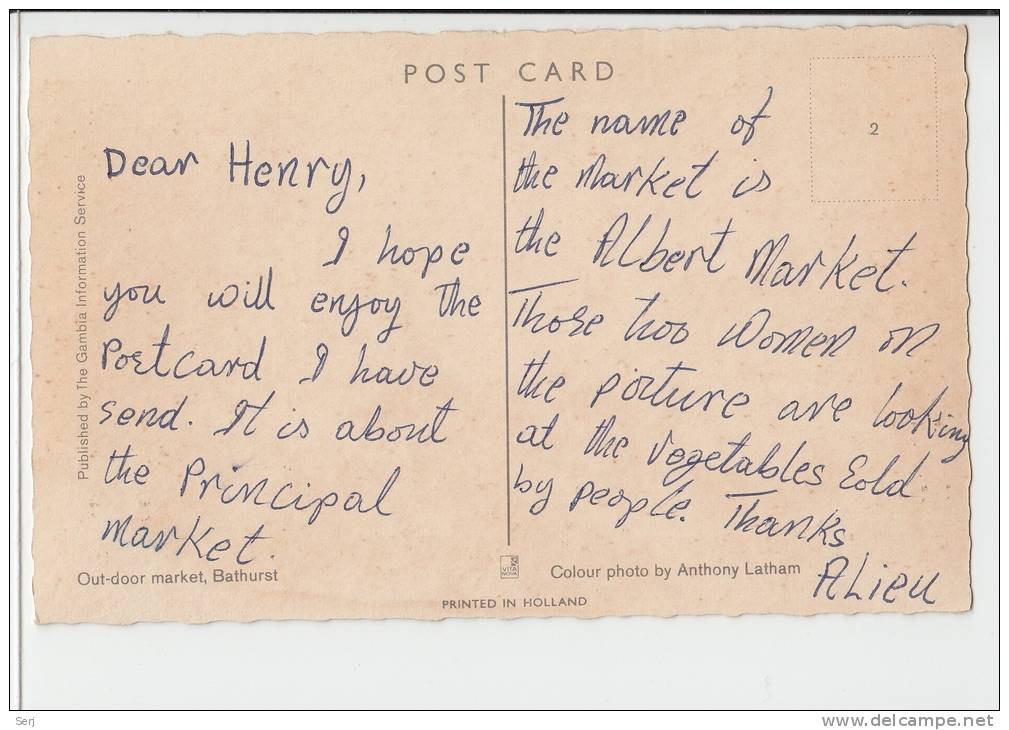 POST CARD
2
Dear Henry,
I hope
you will enjoy the
Postcard I have
send. It is about
the Principal
Market.
The name of
the Market is
the Albert Market.
Those two Women on
the picture are looking
at the vegetables Sold
by people. Thanks
ALieu
Published by The Gambia Information Service
Out-door market, Bathurst
VITA
NOVA
Colour photo by Anthony Latham
PRINTED IN HOLLAND
Serj
www.delcampe.net